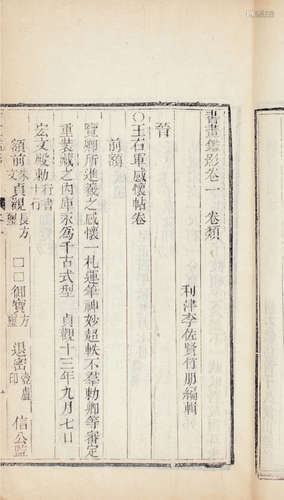 書畫鑑影卷一 卷類
利津李佐賢竹朋編輯
晉
〇王右軍感懷帖卷
前額
覽卿所進羲之感懷一札運筆神妙超軼不羣勅卿等審定
重裝藏之内庫永為千古式型 貞觀十三年九月七日
宏文殿勅 行書十行
額前 朱文 貞觀 長方璽 □□御寶 方璽 退密 葫蘆印 信公監